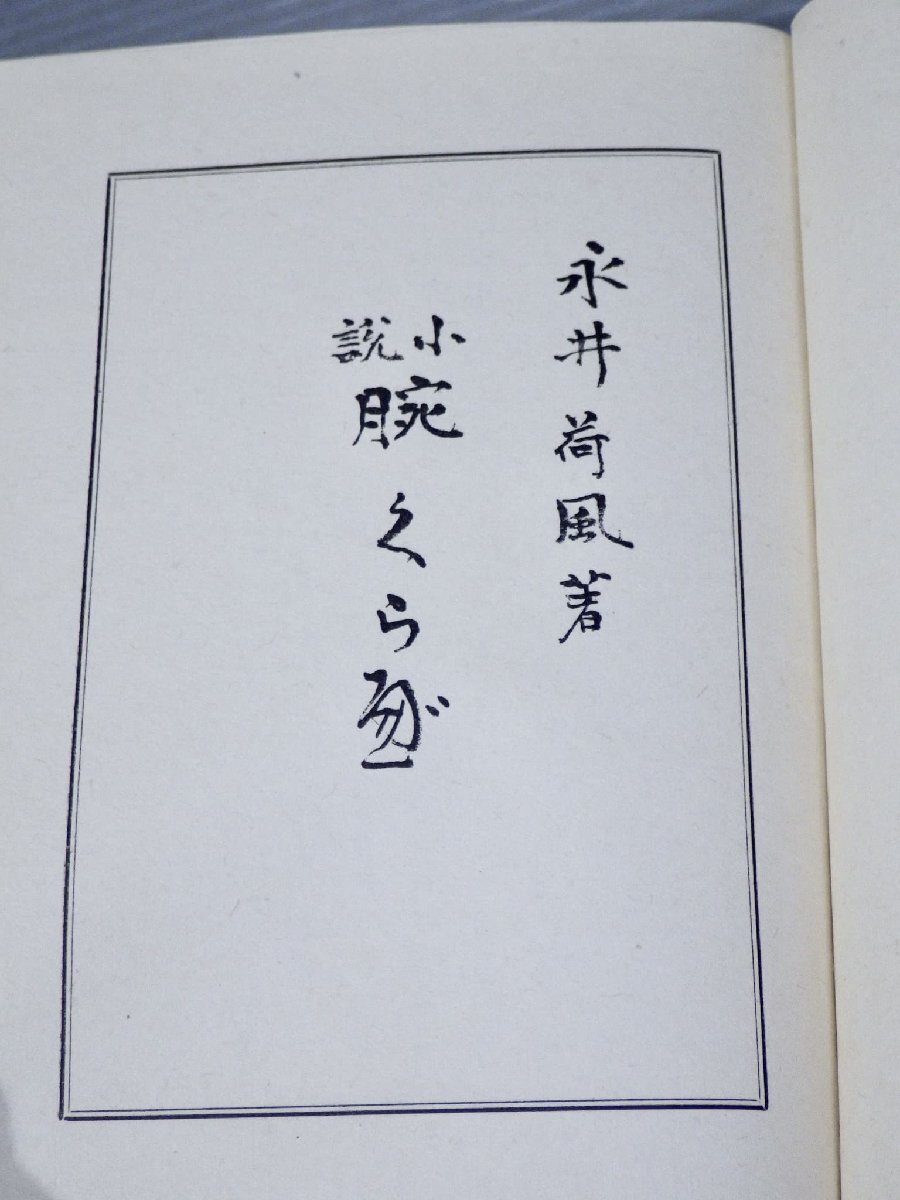 永井荷風著
小説腕くらべ